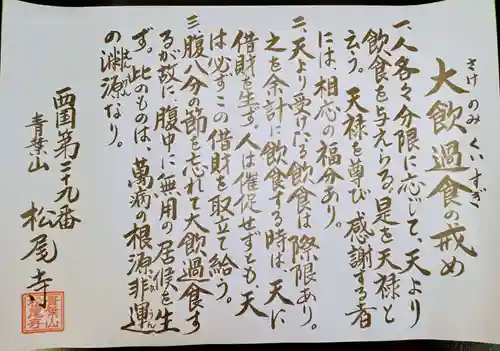 大飲過食の戒め
さけ のみ くい すぎ
一、人各々分限に応じて、天より
飲食を与えらる。是を天禄と
云う。天禄を尊び感謝する者
には、相応の福分あり。
二、天より受けたる飲食は際限あり。
之を余計に飲食する時は、天に
借財を生ず。人は催促せずとも、天
は必ずこの借財を取立て給う。
三、腹八分の節を忘れて大飲過食す
るが故に、腹中に無用の居候を生
ず。此のものは、萬病の根源、非運
の淵源なり。
西国第二十九番
青葉山 松尾寺